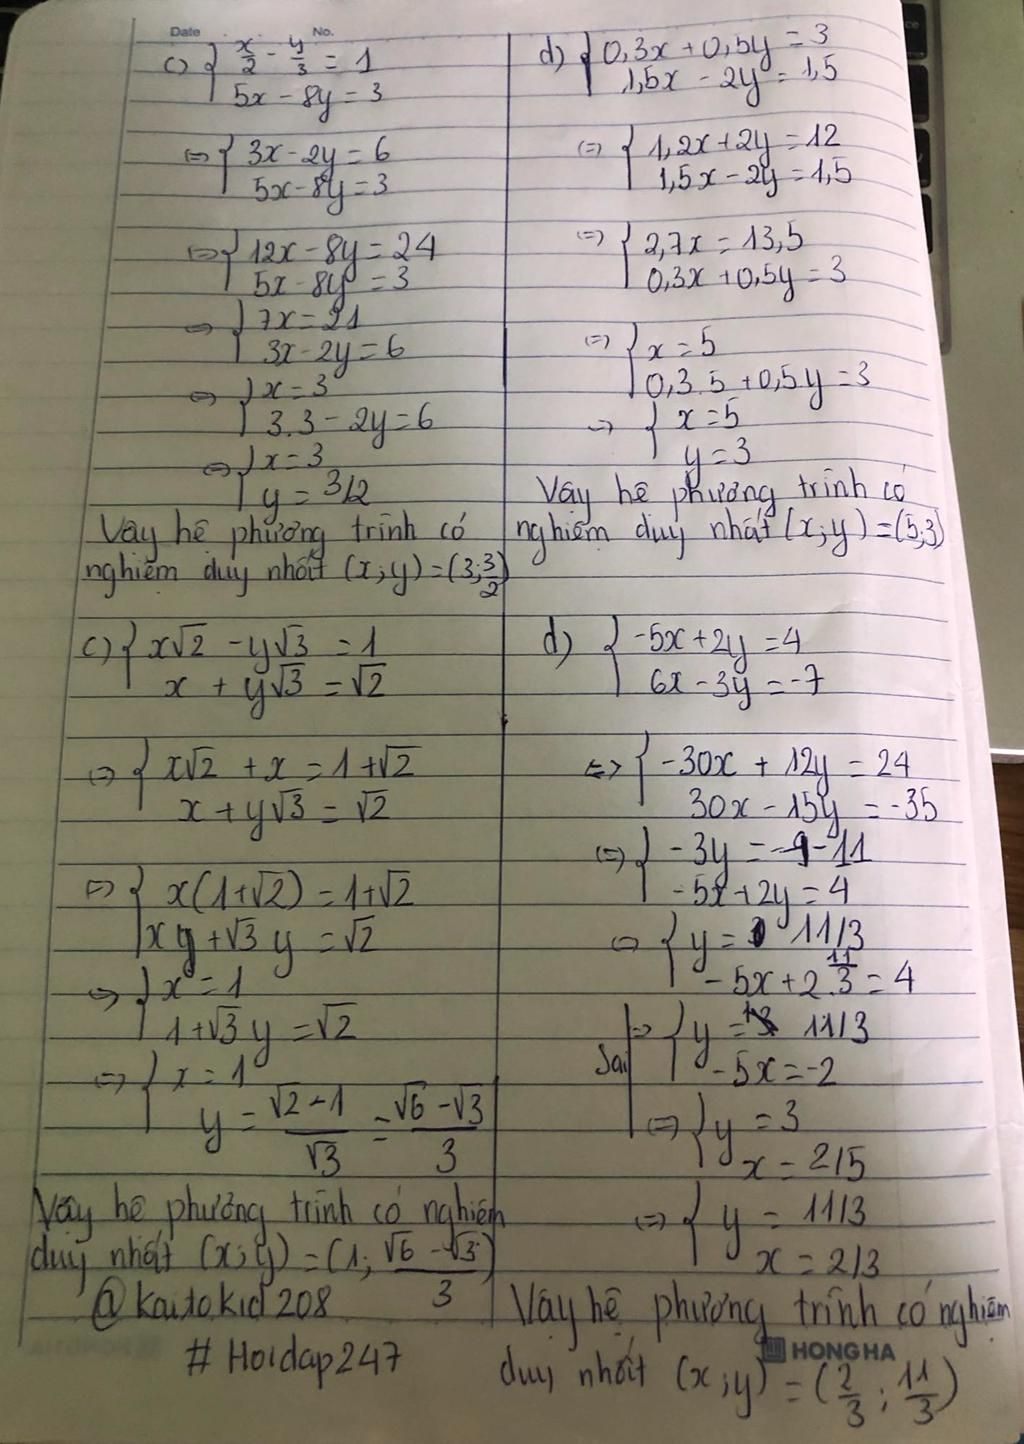 Date No.
c) { x/2 - y/3 = 1
5x - 8y = 3
⇔ { 3x - 2y = 6
5x - 8y = 3
⇔ { 12x - 8y = 24
5x - 8y = 3
⇔ { 7x = 21
3x - 2y = 6
⇔ { x = 3
3.3 - 2y = 6
⇔ { x = 3
y = 3/2
Vậy hệ phương trình có
nghiệm duy nhất (x;y) = (3; 3/2)
d) { 0,3x + 0,5y = 3
1,5x - 2y = 1,5
⇔ { 1,2x + 2y = 12
1,5x - 2y = 1,5
⇔ { 2,7x = 13,5
0,3x + 0,5y = 3
⇔ { x = 5
0,3.5 + 0,5y = 3
⇔ { x = 5
y = 3
Vậy hệ phương trình có
nghiệm duy nhất (x;y) = (5;3)
c) { x√2 - y√3 = 1
x + y√3 = √2
⇔ { x√2 + x = 1 + √2
x + y√3 = √2
⇔ { x(1+√2) = 1+√2
x + √3 y = √2
⇔ { x = 1
1 + √3 y = √2
⇔ { x = 1
y = (√2 - 1)/√3 = (√6 - √3)/3
Vậy hệ phương trình có nghiệm
duy nhất (x;y) = (1; (√6 - √3)/3)
@kaitokid208
#Hoidap247
d) { -5x + 2y = 4
6x - 3y = -7
⇔ { -30x + 12y = 24
30x - 15y = -35
⇔ { -3y = -11
-5x + 2y = 4
⇔ { y = 11/3
-5x + 2.11/3 = 4
Sai ⇔ { y = 11/3
-5x = -2
⇔ { y = 3
x = 2/5
⇔ { y = 11/3
x = 2/3
Vậy hệ phương trình có nghiệm
HONG HA
duy nhất (x;y) = (2/3; 11/3)